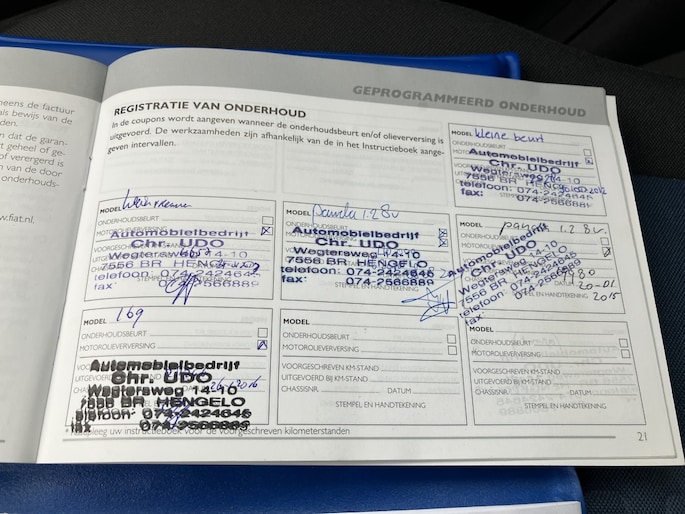 neens de factuur
als bewijs van de
den.
en dat de garan-
t geheel of ge-
d of verergerd is
en van de door
onderhouds-
w.fiat.nl.
GEPROGRAMMEERD ONDERHOUD
REGISTRATIE VAN ONDERHOUD
In de coupons wordt aangeven wanneer de onderhoudsbeurt en/of olieverversing is
uitgevoerd. De werkzaamheden zijn afhankelijk van de in het Instructieboek aange-
geven intervallen.
MODEL kleine beurt
ONDERHOUDSBEURT
Automobielbedrijf
Chr. UDO
Wegtersweg 14-10
7556 BR HENGELO
telefoon: 074-2424645
fax: 074-2566889
MODEL
ONDERHOUDSBEURT
MOTOROLIEVERVERSING
Automobielbedrijf
VOORGESCHREVEN KM-STAND
Chr. UDO
Wegtersweg 14-10
7556 BR HENGELO
telefoon: 074-2424645
fax: 074-2566889
MODEL panda 1.2 8v
ONDERHOUDSBEURT
Automobielbedrijf
Chr. UDO
Wegtersweg 14-10
7556 BR HENGELO
telefoon: 074-2424645
fax: 074-2566889
MODEL panda 1.2 8v.
ONDERHOUDSBEURT
MOTOROLIEVERVERSING
Automobielbedrijf
Chr. UDO
Wegtersweg 14-10
7556 BR HENGELO
telefoon: 074-2424645
fax: 074-2566889
20-01
2015
STEMPEL EN HANDTEKENING
MODEL 169
ONDERHOUDSBEURT
MOTOROLIEVERVERSING
Automobielbedrijf
Chr. UDO
Wegtersweg 14-10
7556 BR HENGELO
telefoon: 074-2424645
fax 074-2566889
MODEL
ONDERHOUDSBEURT
MOTOROLIEVERVERSING
VOORGESCHREVEN KM-STAND
UITGEVOERD BIJ KM-STAND
CHASSISNR. DATUM
STEMPEL EN HANDTEKENING
MODEL
ONDERHOUDSBEURT
MOTOROLIEVERVERSING
VOORGESCHREVEN KM-STAND
UITGEVOERD BIJ KM-STAND
CHASSISNR. DATUM
STEMPEL EN HANDTEKENING
* Raadpleeg uw instructieboek voor de voorgeschreven kilometerstanden
21